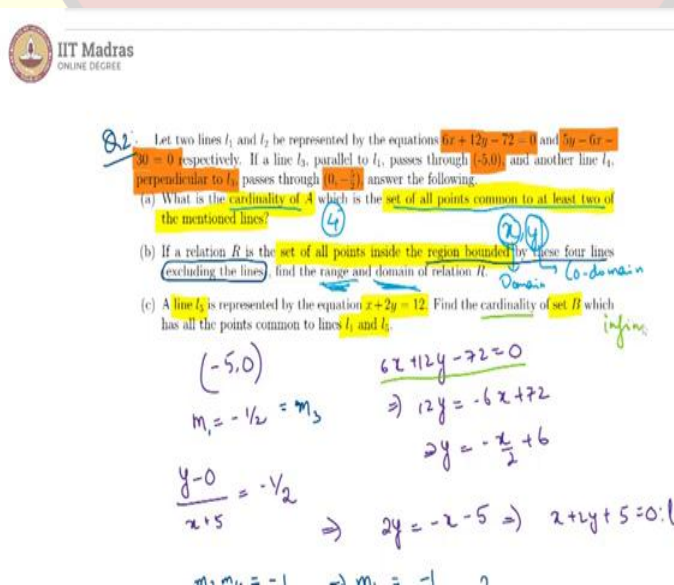 IIT Madras
ONLINE DEGREE
Q2. Let two lines l₁ and l₂ be represented by the equations 6x + 12y − 72 = 0 and 5y − 6x −
30 = 0 respectively. If a line l₃, parallel to l₁, passes through (-5,0), and another line l₄,
perpendicular to passes through answer the following.
(a) What is the cardinality of A which is the set of all points common to at least two of
the mentioned lines?
4
(x, y)
(b) If a relation R is the set of all points inside the region bounded by these four lines
(excluding the lines), find the range and domain of relation R.
Domain
Co-domain
(c) A line l₅ is represented by the equation x+2y = 12. Find the cardinality of set B which
has all the points common to lines l₁ and l₅.
(-5,0)
6x+12y-72=0
m₁ = -1/2 = m₃
⇒ 12y = -6x+72
y = -x/2 + 6
y-0/x+5 = -1/2
⇒ 2y = -x-5 ⇒ x+2y+5=0: